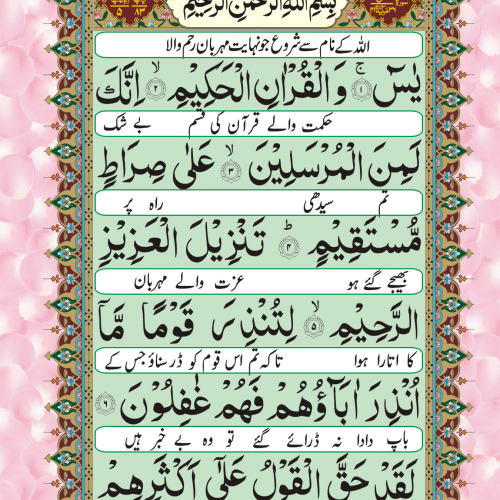 بِسْمِ اللّٰهِ الرَّحْمٰنِ الرَّحِيْمِ
اللہ کے نام سے شروع جو نہایت مہربان رحم والا
يٰسٓ ۚ﴿۱﴾ وَ الْقُرْاٰنِ الْحَكِيْمِ ۙ﴿۲﴾ اِنَّكَ
حکمت والے قرآن کی قسم بے شک
لَمِنَ الْمُرْسَلِيْنَ ۙ﴿۳﴾ عَلٰى صِرَاطٍ
تم سیدھی راہ پر
مُّسْتَقِيْمٍ ؕ﴿۴﴾ تَنْزِيْلَ الْعَزِيْزِ
بھیجے گئے ہو عزت والے مہربان
الرَّحِيْمِ ۙ﴿۵﴾ لِتُنْذِرَ قَوْمًا مَّاۤ
کا اتارا ہوا تاکہ تم اس قوم کو ڈر سناؤ جس کے
اُنْذِرَ اٰبَآؤُهُمْ فَهُمْ غٰفِلُوْنَ ﴿۶﴾
باپ دادا نہ ڈرائے گئے تو وہ بے خبر ہیں
لَقَدْ حَقَّ الْقَوْلُ عَلٰۤى اَكْثَرِهِمْ